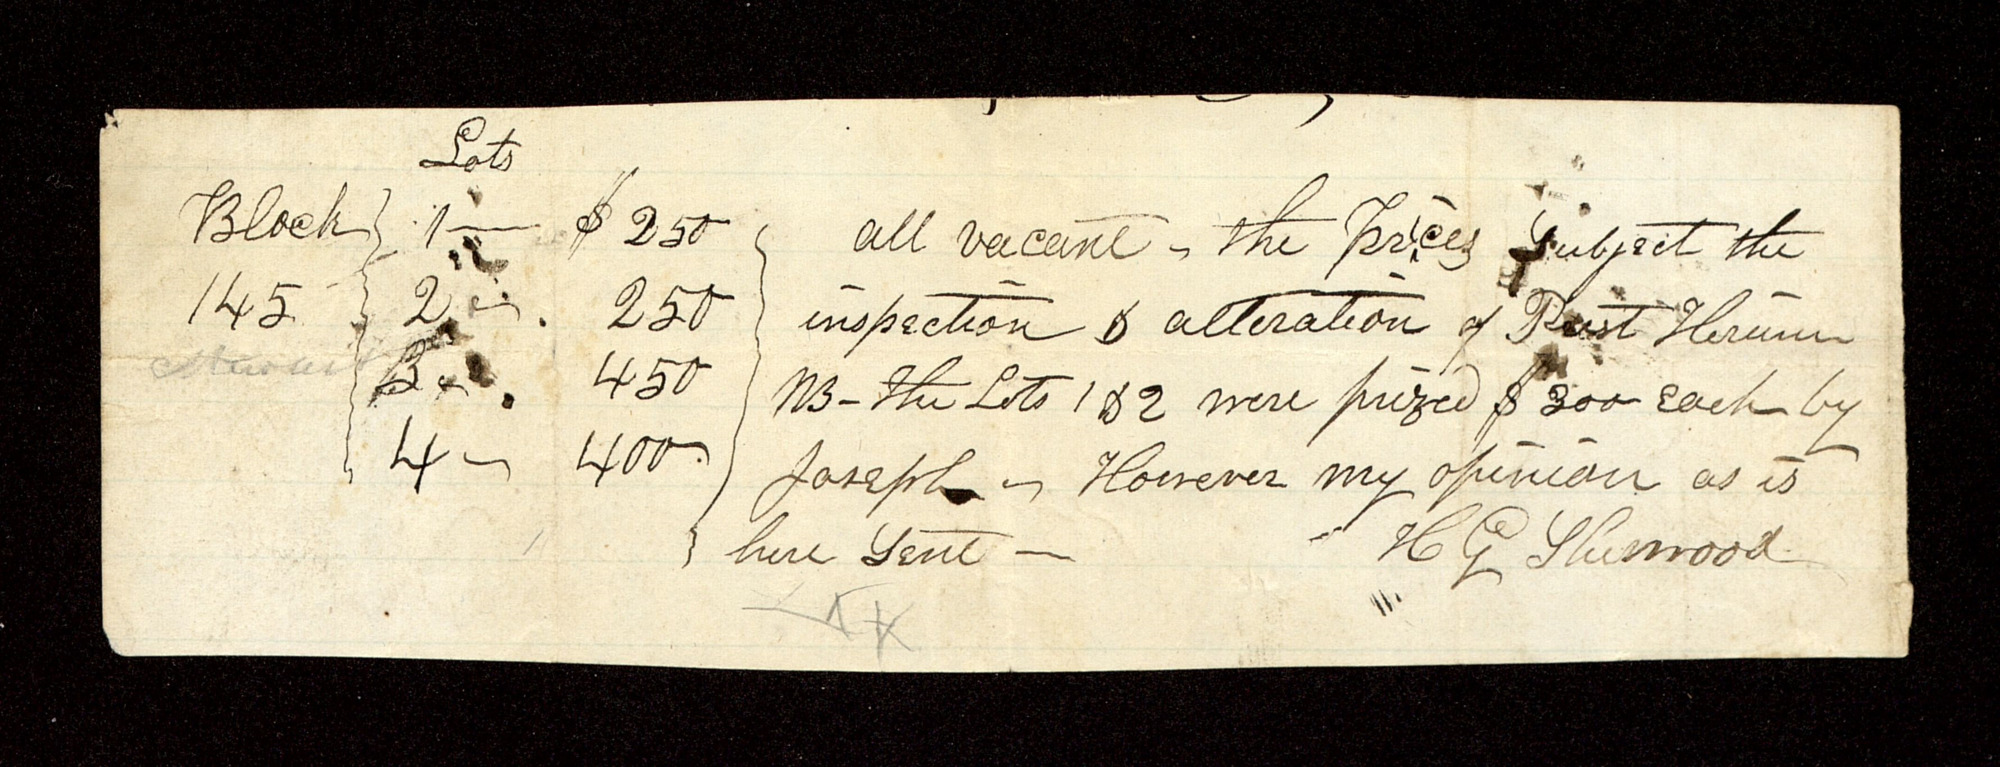 Lots
Block } 1 — $ 250 } all vacant – the Prices Subject the
145 } 2 – . 250 } inspection & alteration of Prest Hirum
3 – . 450 } NB – the Lots 1 & 2 were prized $ 300 each by
4 – 400 } Joseph – However my opinion as is
} here Sent —
H G Sherwood